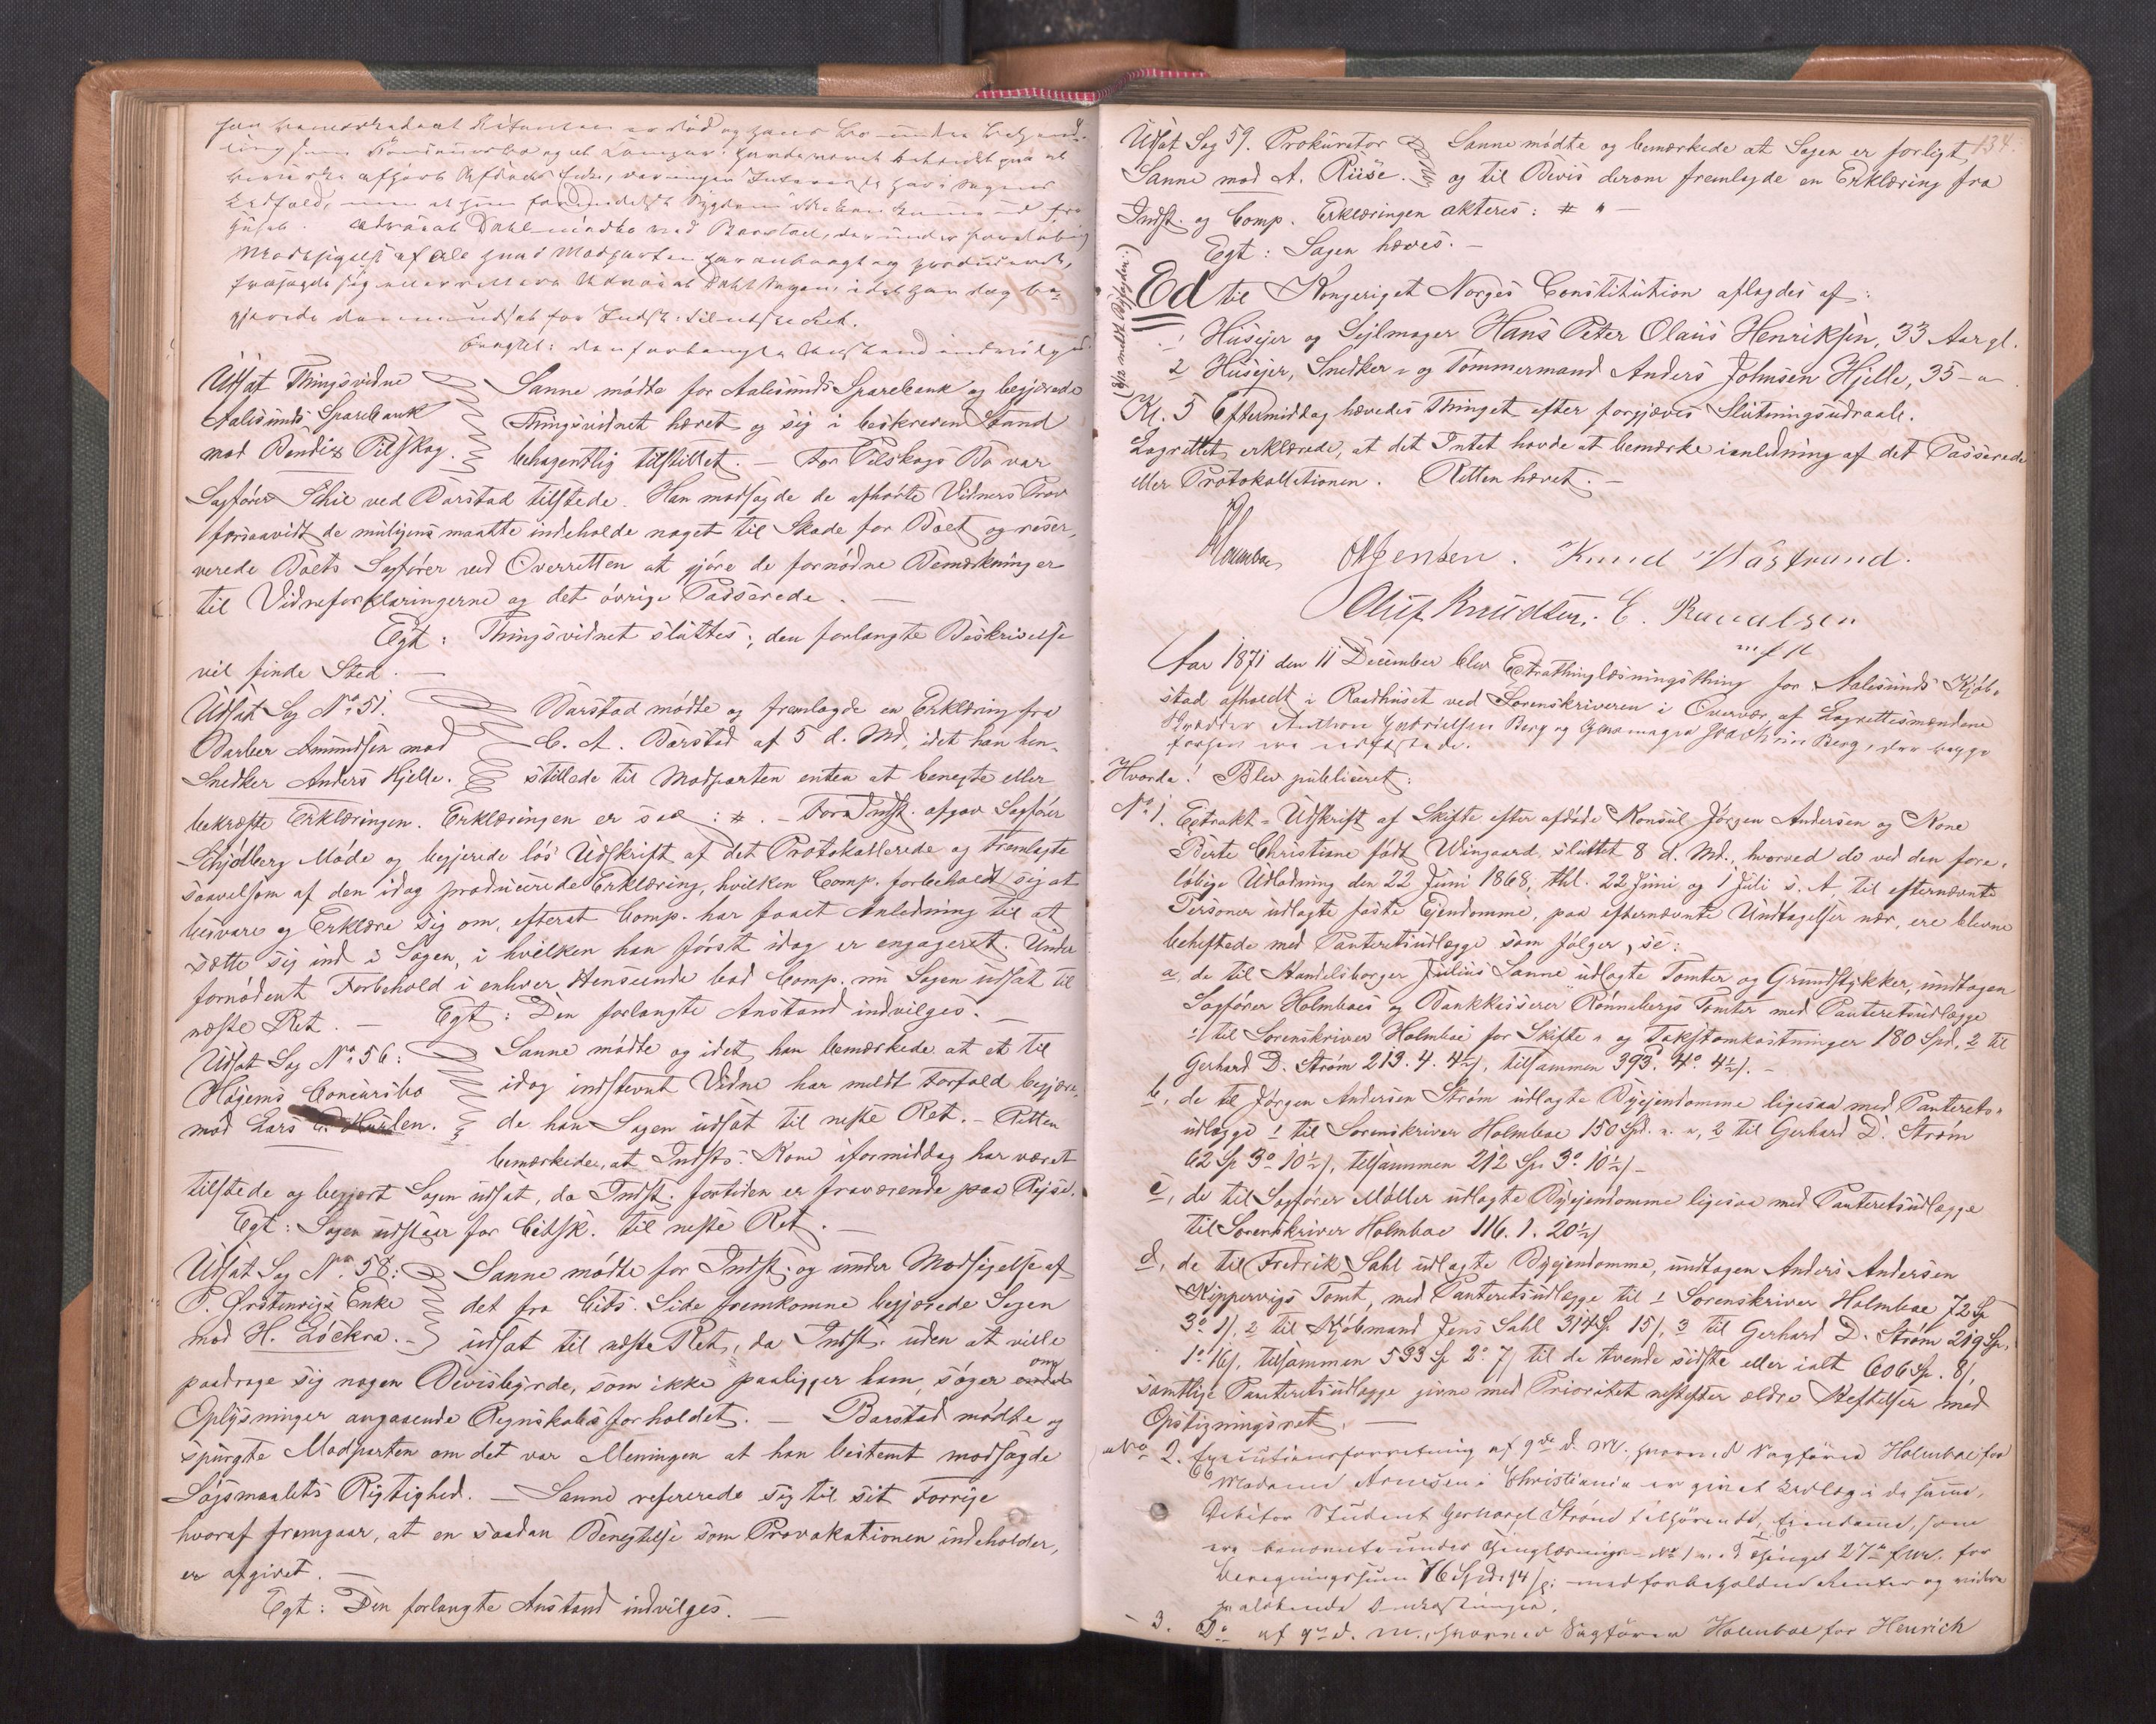 Modsigelse af Alt hvad Modparten har anbragt og produceret,
Udsat Thingsvidne
Aalesunds Sparebank
mod Bendix Pilskog.
Sanne mødte for Aalesunds Sparebank og begjærede
Thingsvidnet hævet og sig i beskreven Stand
behagentlig tilstillet. — For Pilskogs Bo var
Sagfører Thie ved Barstad tilstede. Han modsagde de afhørte Vidners Prov
forsaavidt de muligens maatte indeholde noget til Skade for Boet og reser-
verede Boets Sagfører ved Overretten at gjøre de fornødne Bemærkninger
til Vidneforklaringerne og det øvrige Passerede. —
Egt: Thingsvidnet sluttes; den forlangte Beskrivelse
vil finde Sted. —
Udsat Sag No. 51.
Barber Amundsen mod
Snedker Anders Hjelle.
Barstad mødte og fremlagde en Erklæring fra
C. A. Barstad af 5 d. Md, idet han hen-
stillede til Modparten enten at benegte eller
bekræfte Erklæringen. Erklæringen er saa: #. — For Indst. afgav Sagfører
Schjølberg Møde og begjerede løs Udskrift af det Protokollerede og Fremlagte
saavelsom af den idag producerede Erklæring, hvilken Comp. forbeholdt sig at
besvare og Erklære sig om, efterat Comp. har faaet Anledning til at
sætte sig ind i Sagen, i hvilken han først idag er engageret. Under
fornødent Forbehold i enhver Henseende bad Comp. nu Sagen udsat til
næste Ret. — Egt: Den forlangte Anstand indvilges. —
Udsat Sag No. 56:
Høgems Concursbo
mod Lars E. Hurlen.
Sanne mødte og idet han bemærkede at et til
idag indstevnt Vidne har meldt Forfald begjære-
de han Sagen udsat til neste Ret. — Retten
bemærkede, at Indsts. Kone iformiddag har været
tilstede og begjert Sagen udsat, da Indst. fortiden er fraværende paa Rejse.
Egt: Sagen udstaar for Citsk. til neste Ret. —
Udsat Sag No. 58:
P. Ørstenvigs Enke
mod H. Løckra. —
Sanne mødte for Indst. og under Modsigelse af
det fra Cits. Side fremkomne begjærede Sagen
udsat til næste Ret, da Indst. uden at ville
paadrage sig nogen Bevisbyrde, som ikke paaligger ham, søger om
Oplysninger angaaende Regnskabsforholdet. — Barstad mødte og
spurgte Modparten om det var Meningen at han bestemt modsagde
Søgsmaalets Rigtighed. — Sanne refererede sig til sit Forrige
hvoraf fremgaar, at en saadan Benegtelse som Provokationen indeholder,
er afgivet. —
Egt: Den forlangte Anstand indvilges. —
134.
Udsat Sag 59. Prokurator
Sanne mod A. Riise.
Sanne mødte og bemærkede at Sagen er forligt,
og til Bevis derom fremlagde en Erklæring fra
Indst. og Comp. Erklæringen akteres: # " —
Egt: Sagen hæves. —
Ed til Kongeriget Norges Constitution aflagdes af:
1 Husejer og Sejlmager Hans Peter Olaus Henriksen, 33 Aar gl.
2 Husejer, Snedker- og Tømmermand Anders Johnsen Hjelle, 35 — " —
Kl. 5 Eftermiddag hævedes Thinget efter forgjæves Slutningsudraab.
Lagrettet erklærede, at det Intet havde at bemærke ianledning af det Passerede
eller Protokollationen. Retten hævet. —
Holmboe OMJensen. Knud Wastrand.
Oluf Knudsen. E. Ronaldsen
Aar 1871 den 11 December blev Extrathinglæsningsthing for Aalesunds Kjøb-
stad afholdt i Raadhuset ved Sorenskriveren i Overvær af Lagrettesmændene
Hvorda! Blev publiceret:
No. 1. Extrakt-Udskrift af Skifte efter afdøde Konsul Jørgen Andersen og Kone
Berte Christiane født Wingaard, sluttet 8 d. Md., hvorved de ved den fore-
løbige Udlodning den 22 Juni 1868, thl. 22 Juni og 1 Juli s. A. til efternævnte
Personer udlagte faste Ejendomme, paa efternævnte Undtagelser nær, ere blevne
beheftede med Panteretsudlægge som følger, se:
a, de til Handelsborger Julius Sanne udlagte Tomter og Grundstykker, undtagen
Sagfører Holmboes og Bankkasserer Rønnebergs Tomter med Panteretsudlægge
1) til Sorenskriver Holmboe for Skifte- og Takstomkostninger 180 Spd, 2 til
Gerhard D. Strøm 213. 4. 4½ /, tilsammen 393. 4. 4½ /. —
b, de til Jørgen Andersen Strøm udlagte Byejendomme ligesaa med Panterets-
udlægge 1 til Sorenskriver Holmboe 150 Spd. " ", 2 til Gerhard D. Strøm
62 Sp 3 10½ /, tilsammen 212 Sp. 3 10½ / —
c, de til Sagfører Møller udlagte Byejendomme ligesaa med Panteretsudlægge
til Sorenskriver Holmboe 116. 1. 20½ /
d, de til Fredrik Sahl udlagte Byejendomme, undtagen Anders Andersen
Kippervigs Tomt, med Panteretsudlægge til 1 Sorenskriver Holmboe 72 Sp
3 1/, 2 til Kjøbmand Jens Sahl 314 Sp 15/, 3 til Gerhard D. Strøm 219 Sp.
1 16/, tilsammen 533 Sp 2 7/ til de tvende sidste eller ialt 606 Sp. 8/,
samtlige Panteretsudlægge givne med Prioritet nestefter ældre Heftelser med
Opsigningsret. —
No. 2. Executionsforretning af 9de d. M., hvorved Sagfører Holmboe for
Madame Arnesen i Christiania er givet Udlæg i de samme,
Debitor Student Gerhard Strøm tilhørende, Eiendomme, som
— 3. Do af 9de d. M., hvorved Sagfører Holmboe for Henrich